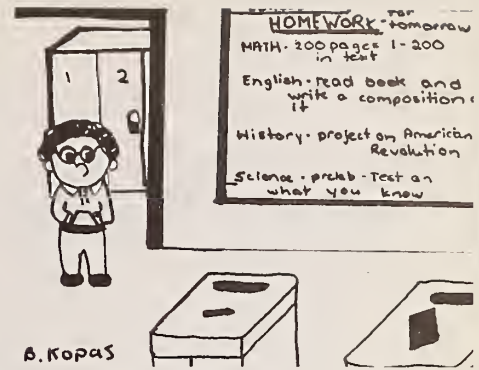 HOMEWORK - for
tomorrow
MATH - 200 pages 1-200
in text
English - read book and
write a composition
it
History - project on American
Revolution
Science - prelab - Test on
what you know
1 2
B. Kopas